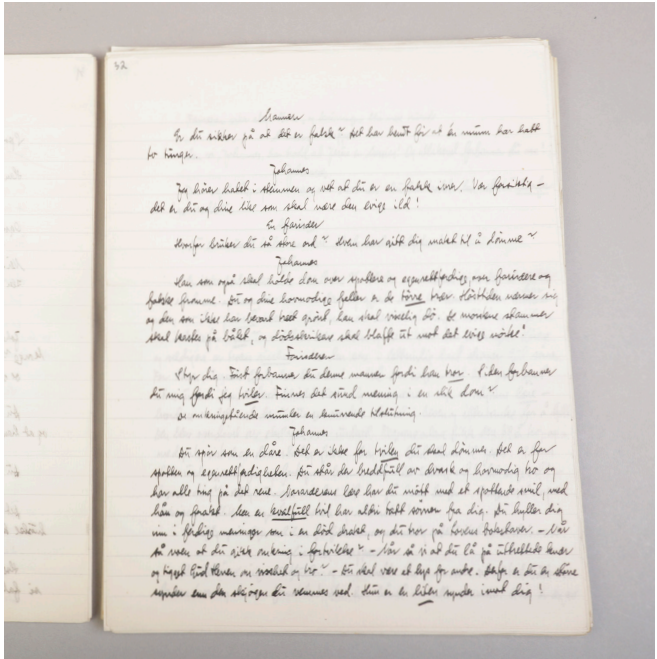 32
Mannen
Er du sikker på at det er falsk? Det har hendt før at én munn har hatt
to tunger.
Johannes
Jeg hører hatet i stemmen og vet at du er en falsk iver. Vær forsiktig –
det er du og dine like som skal nære den evige ild!
En fariséer
Hvorfor bruker du så store ord? Hvem har gitt dig makt til å dømme?
Johannes
Han som også skal holde dom over spottere og egenrettferdige, over fariséere og
falske fromme. Du og dine hovmodige feller er de tørre trær. Hösttiden nærmer sig
og den som ikke har bevart treet grönt, han skal visselig dö. De morkne stammer
skal kastes på bålet, og dödsstrikene skal blaffe ut mot det evige mörke!
Fariséeren
Styr dig. Först forbanner du denne mannen fordi han tror. Siden forbanner
du mig fordi jeg tviler. Finnes det sund mening i en slik dom?
De omkringstående mumler en tilslutning.
Johannes
Du spör som en dåre. Det er ikke for tvilen du skal dömmes. Det er for
spotten og egenrettferdigheten. Du står der breddfull av dvask og hovmodig tro og
har alle ting på det rene. lære har du mött med et spottende smil, med
hån og forakt. Men en kvalfull tvil har aldri tatt sövnen fra dig. Du hyller dig
inn i ferdige meninger som i en död drakt, og du tror på lovens bokstaver. – Når
så noen at du gikk omkring i fortvilelse? – Når så vi at du lå på knær
og tigget Gud Herren om visshet og tro? – Du skal være et lys for andre. Derfor er du en större
synder enn den skjögen du vemmes ved. Hun er en liten synder imot dig!